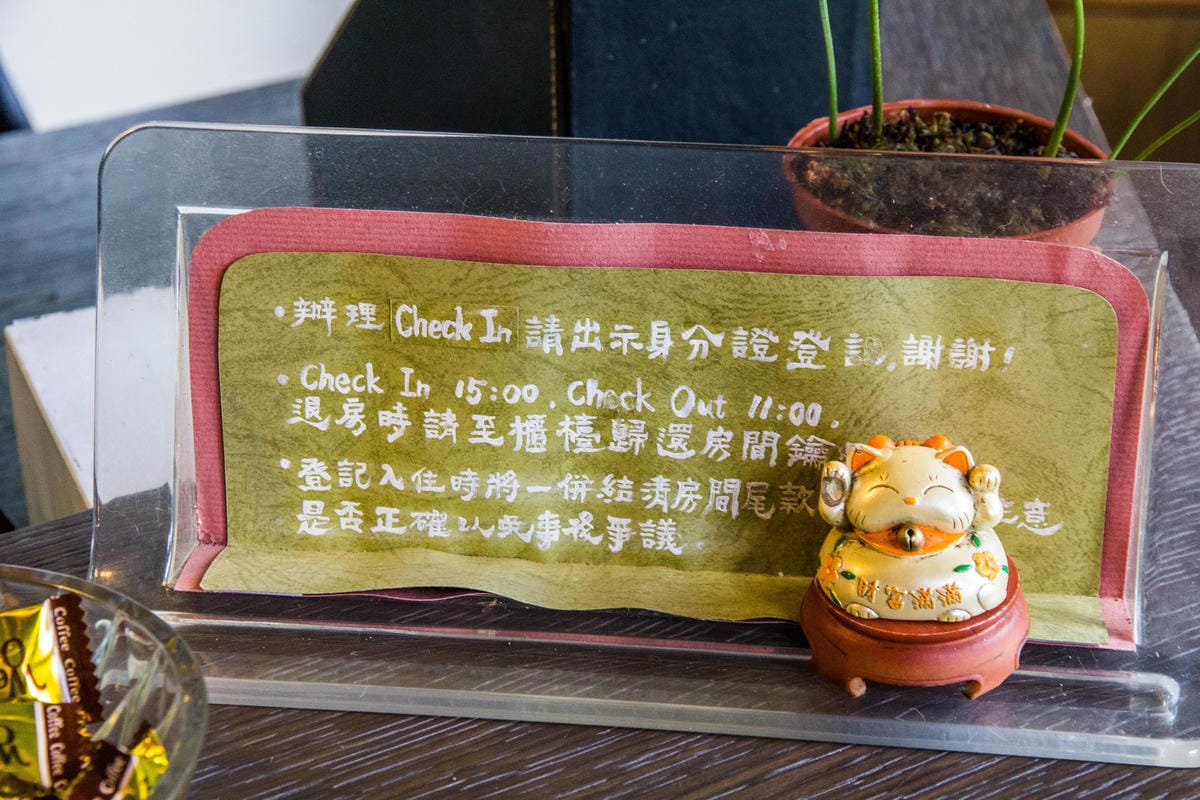 •辦理 Check In 請出示身分證登記,謝謝!
•Check In 15:00. Check Out 11:00.
退房時請至櫃檯歸還房間鑰
•登記入住時將一併結清房間尾款
注意
是否正確以免事後爭議.
財富滿滿
Coffee Coffee
Coffee Coffee
Coffee